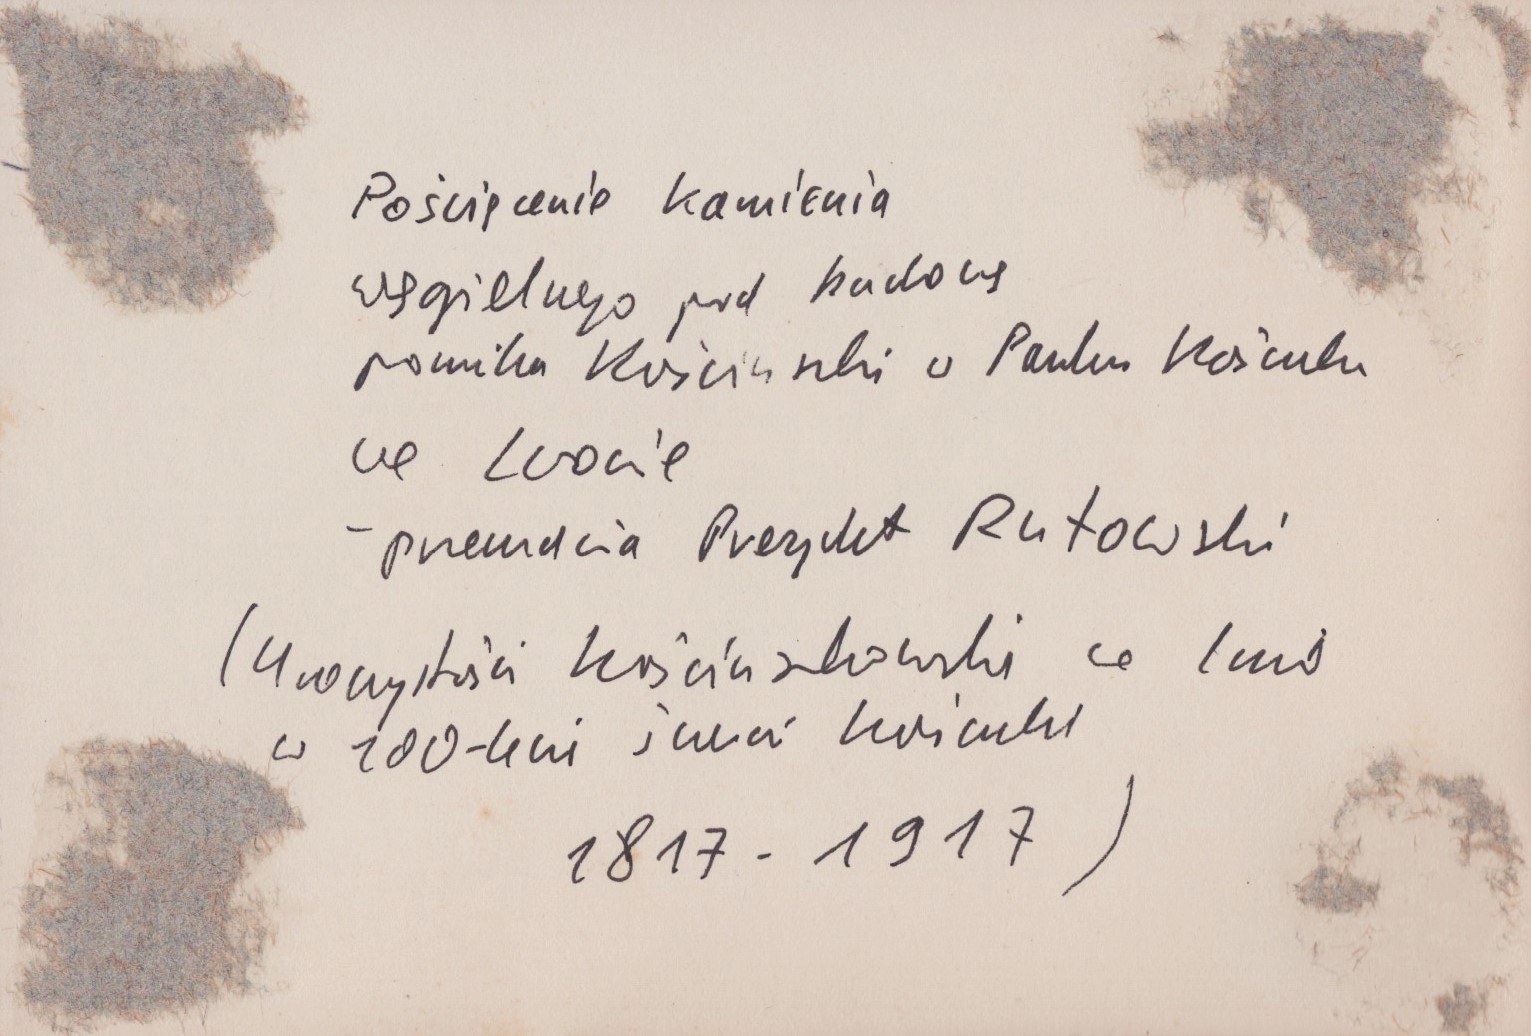 Poświęcenie kamienia
węgielnego pod budowę
pomnika Kościuszki w Parku Kościuszki
we Lwowie
- przemawia Prezydent Rutowski
(Uroczystości Kościuszkowskie we Lwowie
w 100-lecie śmierci Kościuszki
1817 - 1917)